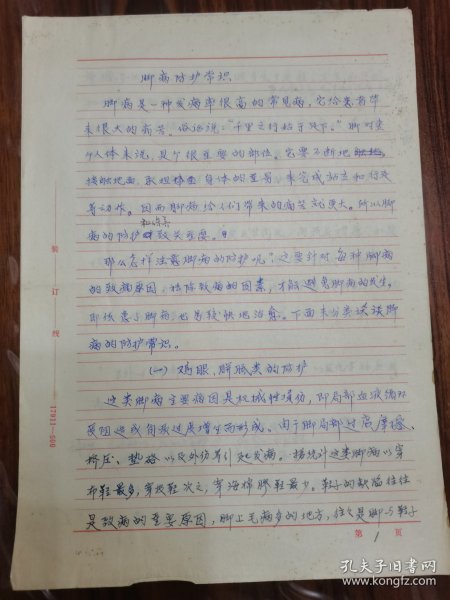 脚病防护常识
脚病是一种发病率很高的常见病，它给患者带
来很大的痛苦。俗话说："千里之行始于足下。"脚对于
个人体来说，是个很重要的部位。它要不断地
接触地面，承担身体的重量，来完成站立和行走
等动作。因而脚病给人们带来的痛苦就更大。所以脚
病的防护致关重要。
那么怎样注意脚病的防护呢？这要针对每种脚病
的致病原因，祛除致病的因素，才能避免脚病的发生。
即使患了脚病，也易较快地治愈。下面来分类谈谈脚
病的防护常识。
(一) 鸡眼、胼胝类的防护
这类脚病主要病因是机械性损伤，即局部血液循环
受阻造成角质过度增生而形成。由于脚局部过度摩擦、
挤压、垫硌以及外伤等引起发病。据统计这类脚病以穿
布鞋最多，穿皮鞋次之，穿海棉胶鞋最少。鞋子的缺陷往往
是致病的重要原因，脚上毛病多的地方，往久是脚与鞋子
装订线
17911—600
第1页
孔夫子旧书网
www.kongfz.com